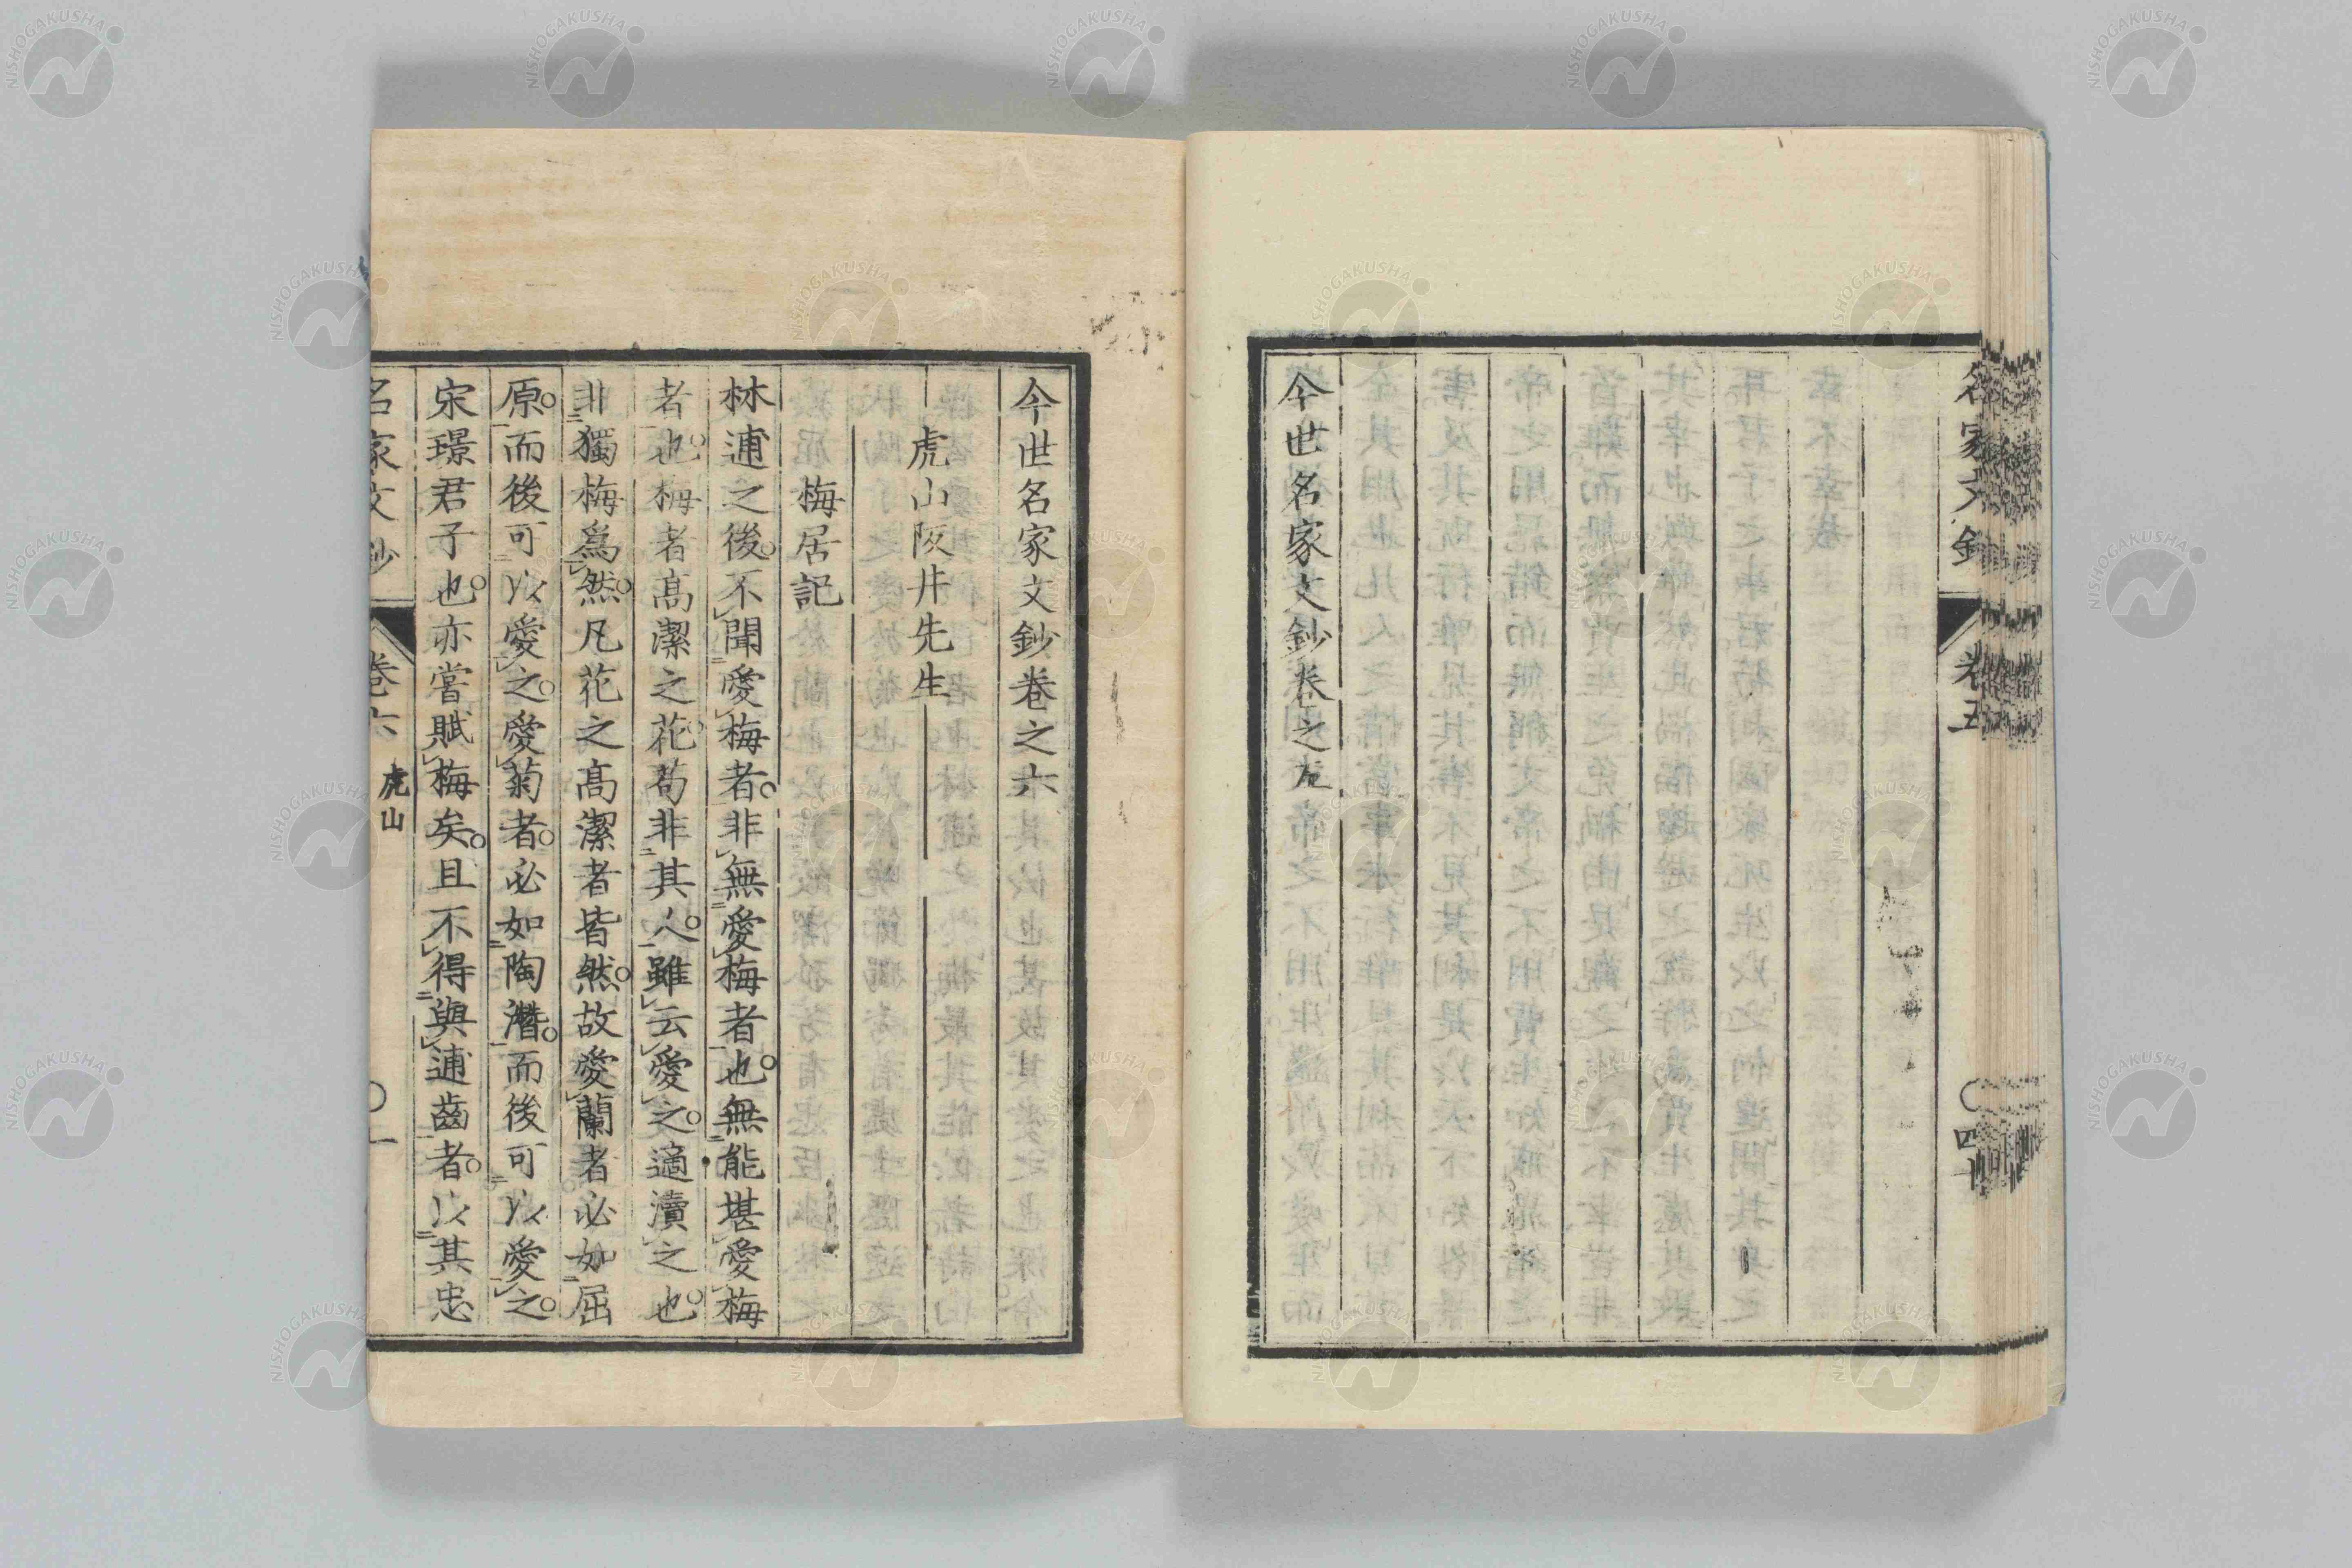 今世名家文鈔卷之五
名家文鈔
卷五
四十
今世名家文鈔卷之六
虎山阪井先生
梅居記
林逋之後不聞愛梅者非無愛梅者也無能堪愛梅
者也梅者高潔之花苟非其人雖云愛之適瀆之也
非獨梅爲然凡花之高潔者皆然故愛蘭者必如屈
原而後可以愛之愛菊者必如陶潛而後可以愛之
宋璟君子也亦嘗賦梅矣且不得與逋齒者以其忠
名家文鈔
卷六
虎山
一
NISHOGAKUSHA